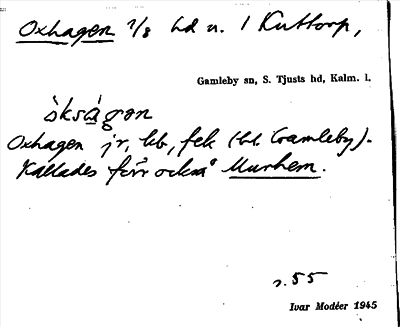 Oxhagen 1/8 hd u. 1 Kuttorp,
Gamleby sn, S. Tjusts hd, Kalm. l.
òkságən
Oxhagen jr, kb, fek (hd Gamleby).
Kallades förr också Murhem.
s. 55
Ivar Modéer 1945